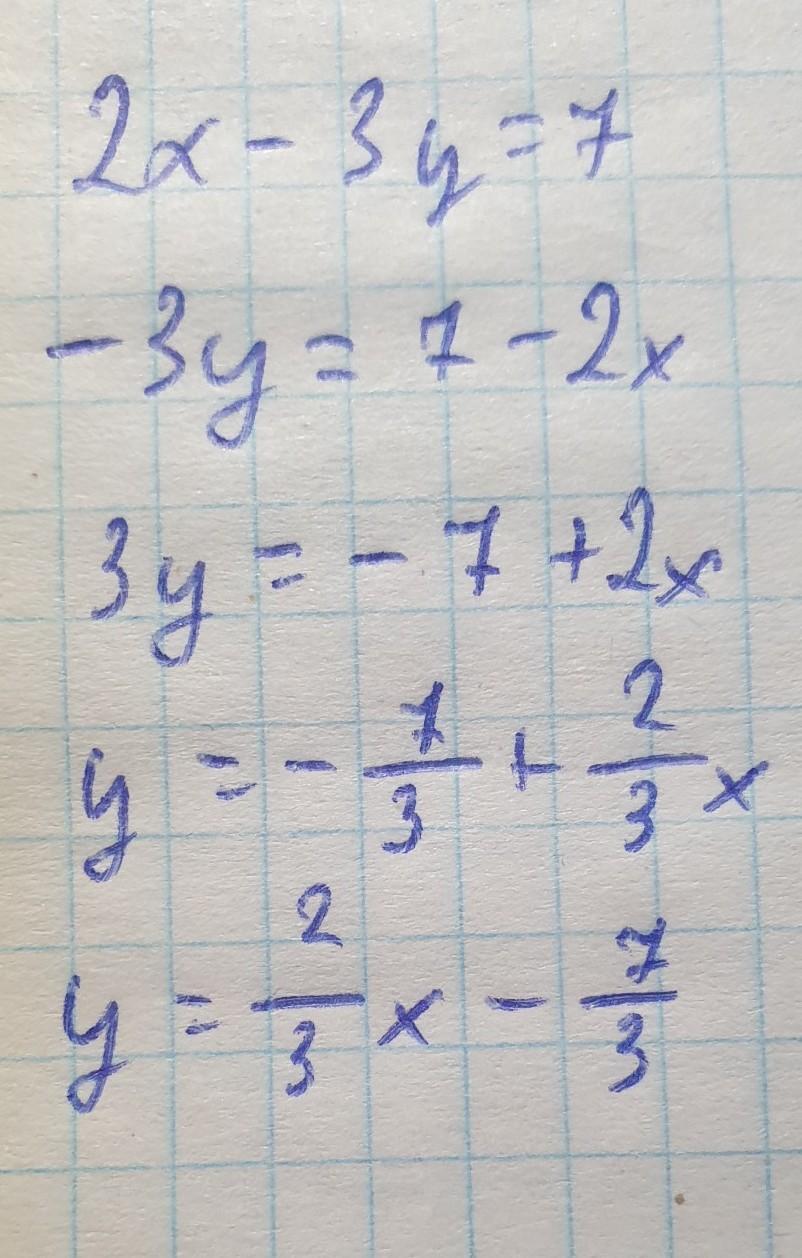 2x - 3y = 7
-3y = 7 - 2x
3y = - 7 + 2x
y = - 7/3 + 2/3 x
y = 2/3 x - 7/3